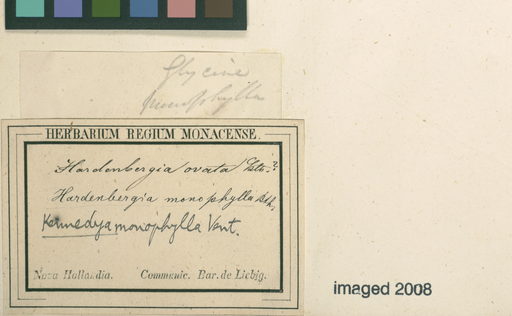 Glycine
monophylla
HERBARIUM REGIUM MONACENSE.
Hardenbergia ovata Bth.?
Hardenbergia monophylla Bth.
Kennedya monophylla Vent.
Nova Hollandia. Communic. Bar. de Liebig.
imaged 2008